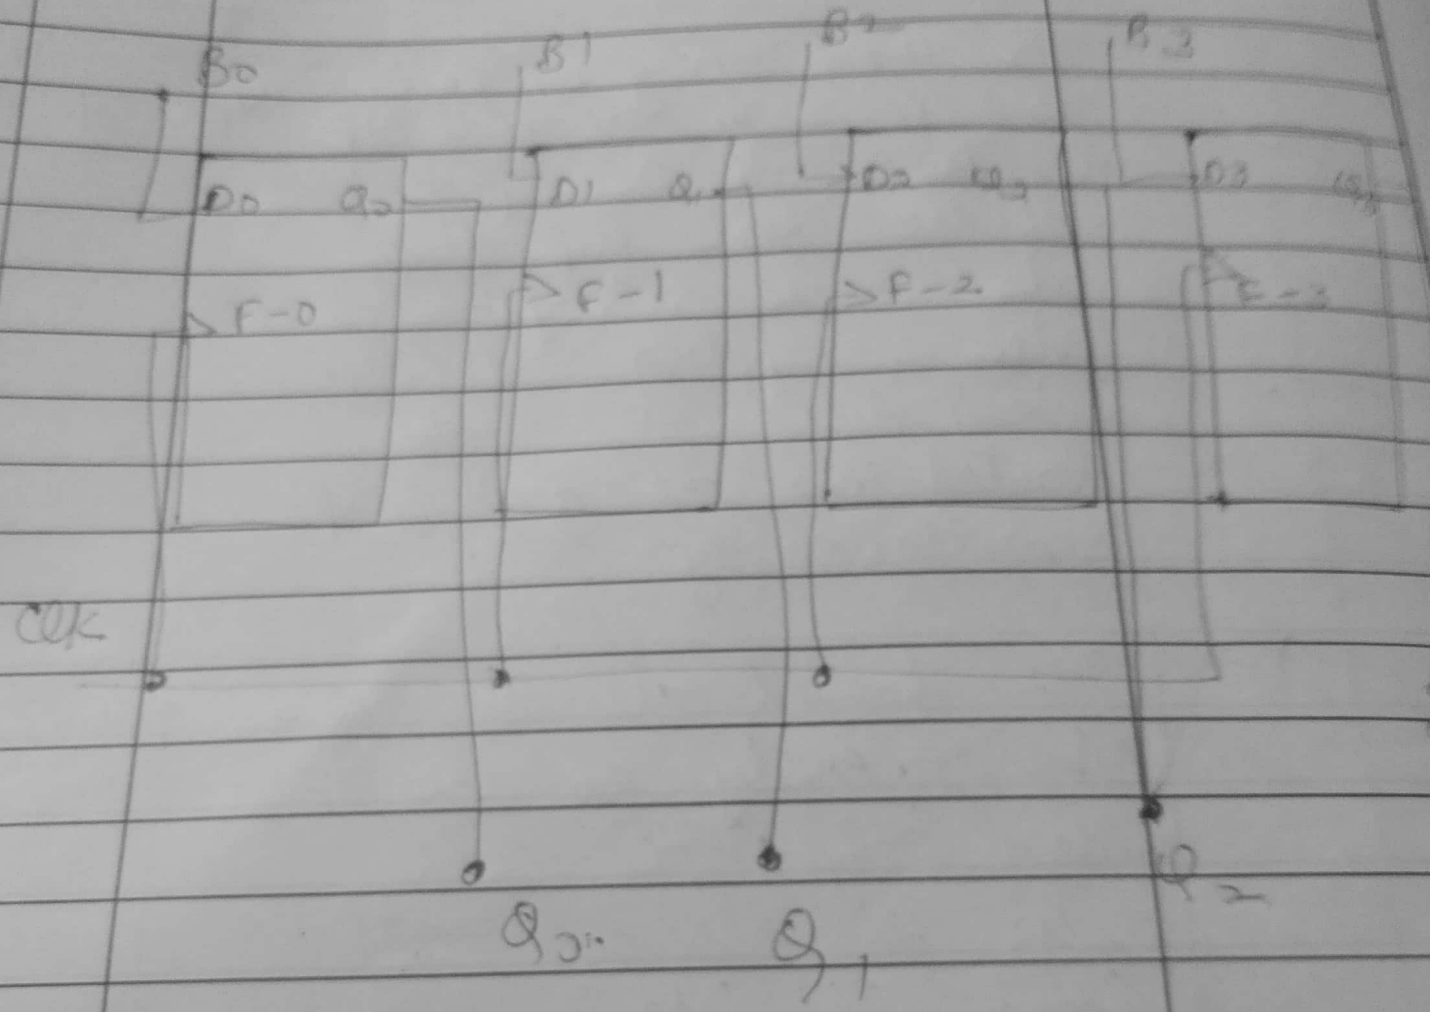 B0 B1 B2 B3
D0 Q0 D1 Q1 D2 Q2 D3 Q3
F-0 F-1 F-2 F-3
Clk
Q0 Q1 Q2